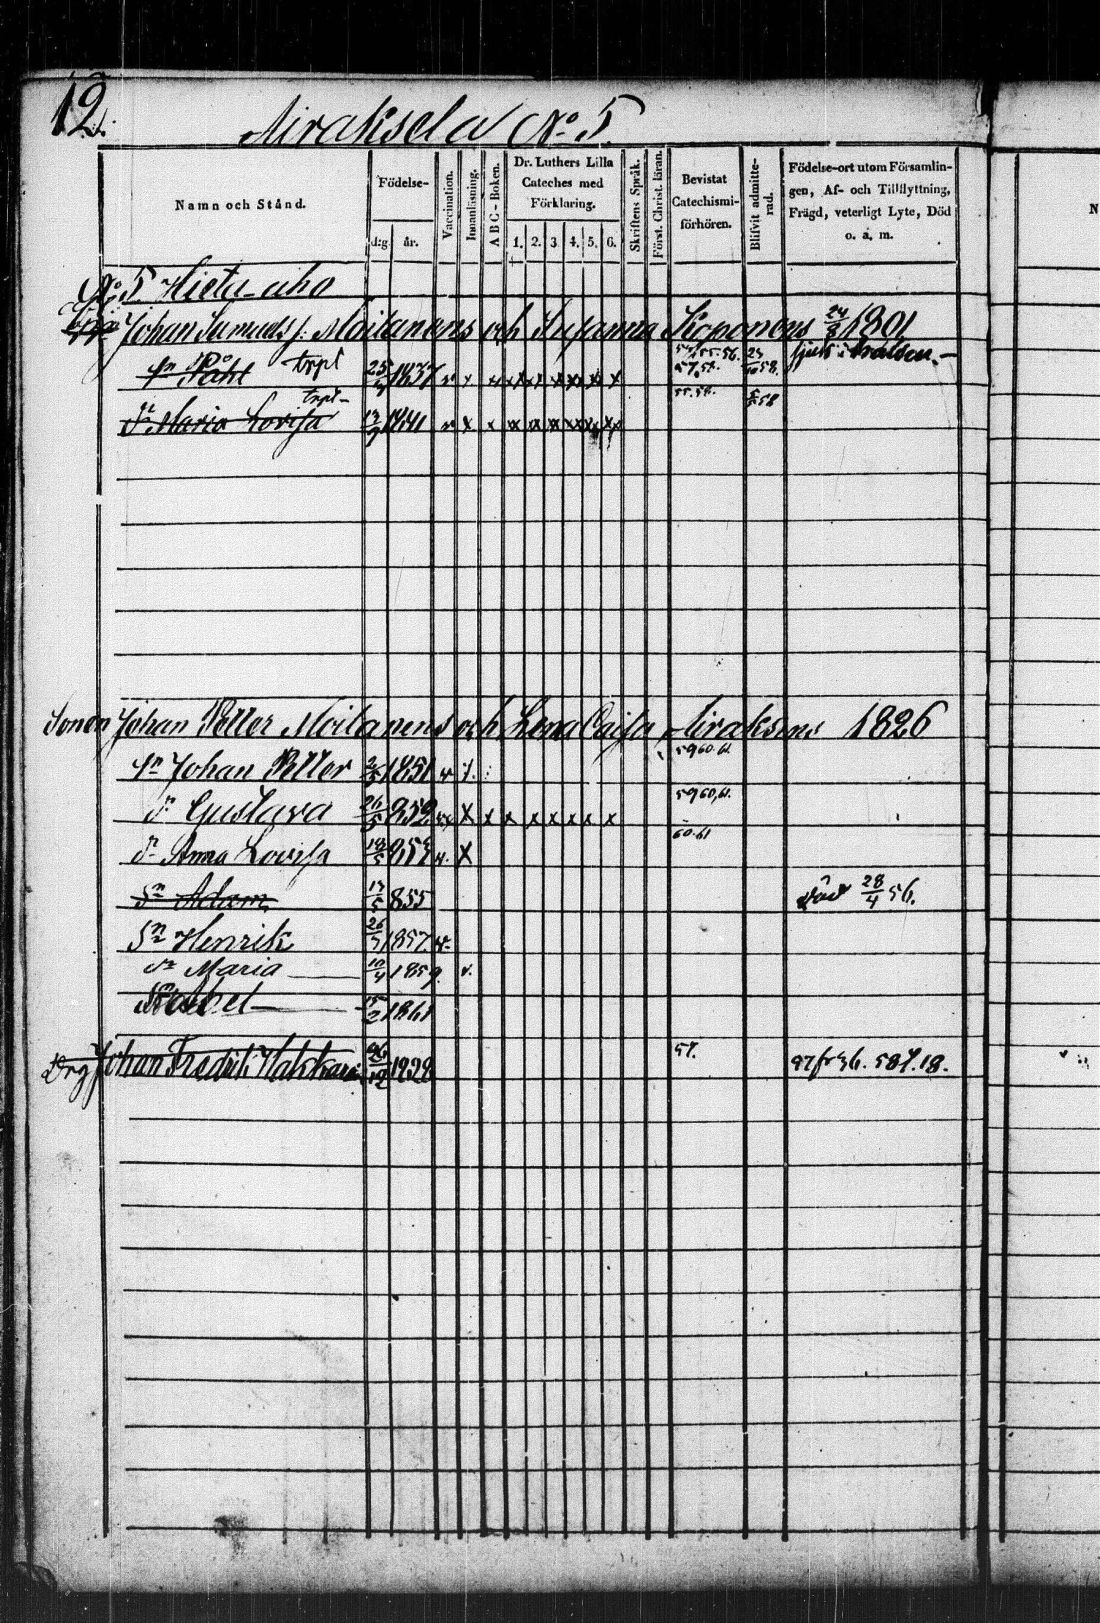 12.
Airaksela No 5
Namn och Stånd.
Födelse-
d:g.
år.
Vaccination.
Innanläsning.
A B C - Boken.
Dr. Luthers Lilla
Cateches med
Förklaring.
1. 2. 3. 4. 5. 6.
Skriftens Språk.
Först. Christ. läran.
Bevistat
Catechismi-
förhören.
Blifvit admitte-
rad.
Födelse-ort utom Församlin-
gen, Af- och Tillflyttning,
Frägd, veterligt Lyte, Död
o. a. m.
No 5 Hieta-aho
Johan Moilanens och Susanna Koponens 24/8 1801
Sn Påhl 25 1837 v x 23 58.
55.56. 58
Dr Maria Lovisa 13 1841 v x x xx xx xx
Sonen Johan Petter Moilanens och Lena Cajsa Airaksins 1826
Sn Johan Petter 1851 59 60. 61
Dr Gustava 26/5 852 x x x x x x x x 59 60, 61.
Dr Anna Lovisa 18/5 853 v. x 60. 61
Sn Adam 13/5 855 död 28/4 56.
Sn Henrik 26 1857 v.
Dr Maria 10/4 1859. v.
15/2 1861
Drg Johan Fredrik Hakkarain 26/12 1838 57.